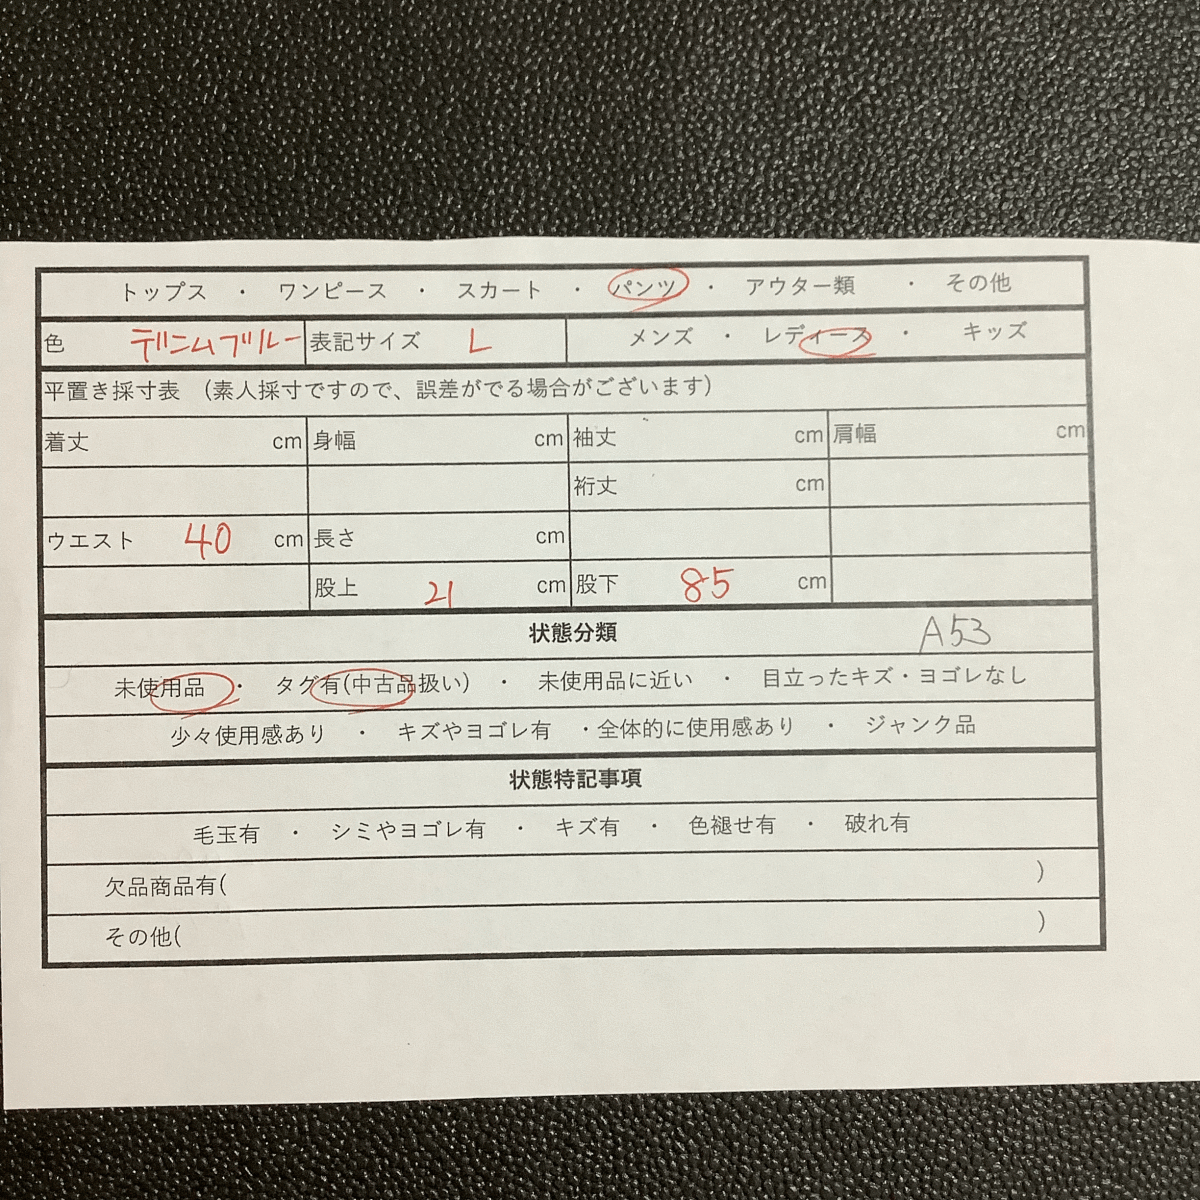 トップス ・ ワンピース ・ スカート ・ パンツ ・ アウター類 ・ その他
色 デニムブルー 表記サイズ L メンズ ・ レディース ・ キッズ
平置き採寸表 （素人採寸ですので、誤差がでる場合がございます）
着丈 cm 身幅 cm 袖丈 cm 肩幅 cm
裄丈 cm
ウエスト 40 cm 長さ cm
股上 21 cm 股下 85 cm
状態分類 A53
未使用品 ・ タグ有(中古品扱い) ・ 未使用品に近い ・ 目立ったキズ・ヨゴレなし
少々使用感あり ・ キズやヨゴレ有 ・全体的に使用感あり ・ ジャンク品
状態特記事項
毛玉有 ・ シミやヨゴレ有 ・ キズ有 ・ 色褪せ有 ・ 破れ有
欠品商品有( )
その他( )